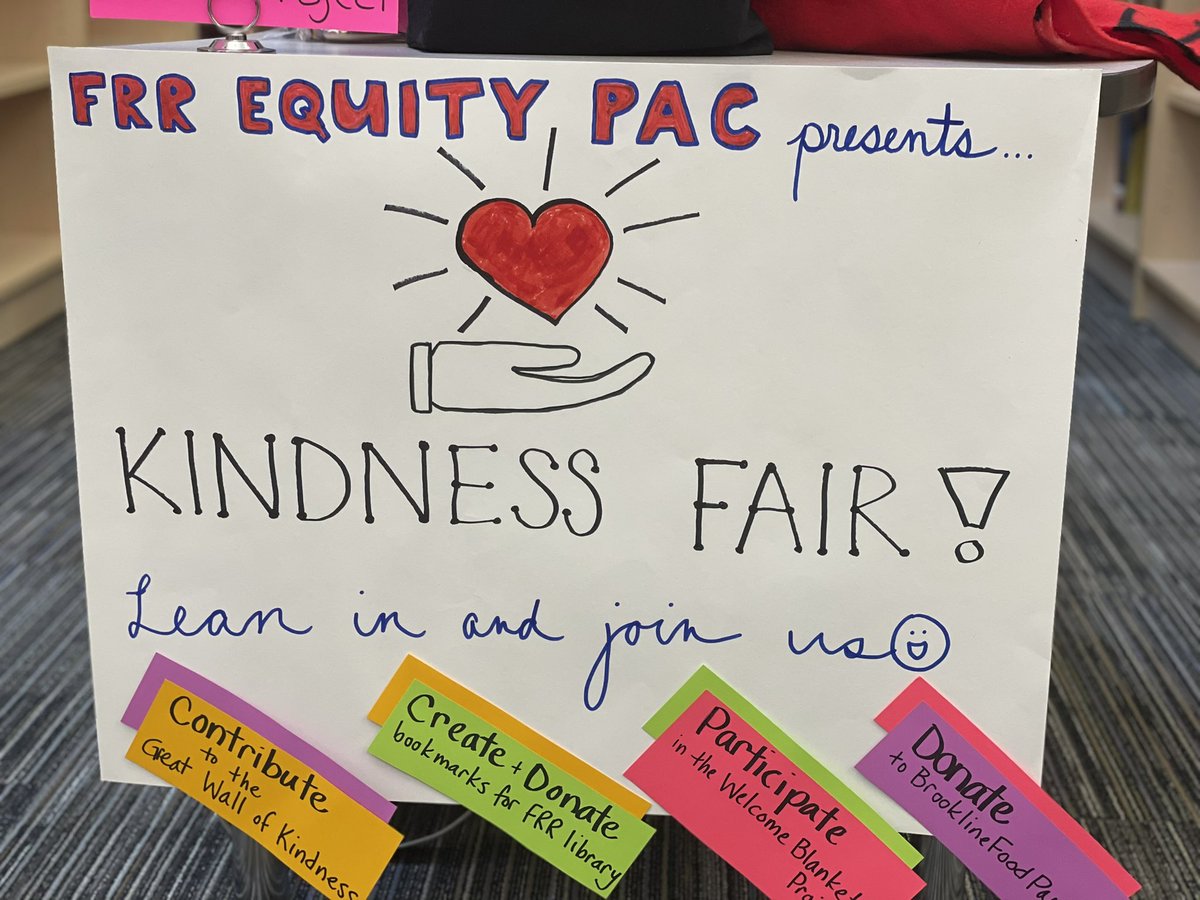 FRR EQUITY PAC presents...
KINDNESS FAIR!
Lean in and join us
Contribute
to the
Great Wall of Kindness
Create + Donate
bookmarks for FRR library
Participate
in the Welcome Blanket
Donate
to Brookline Food